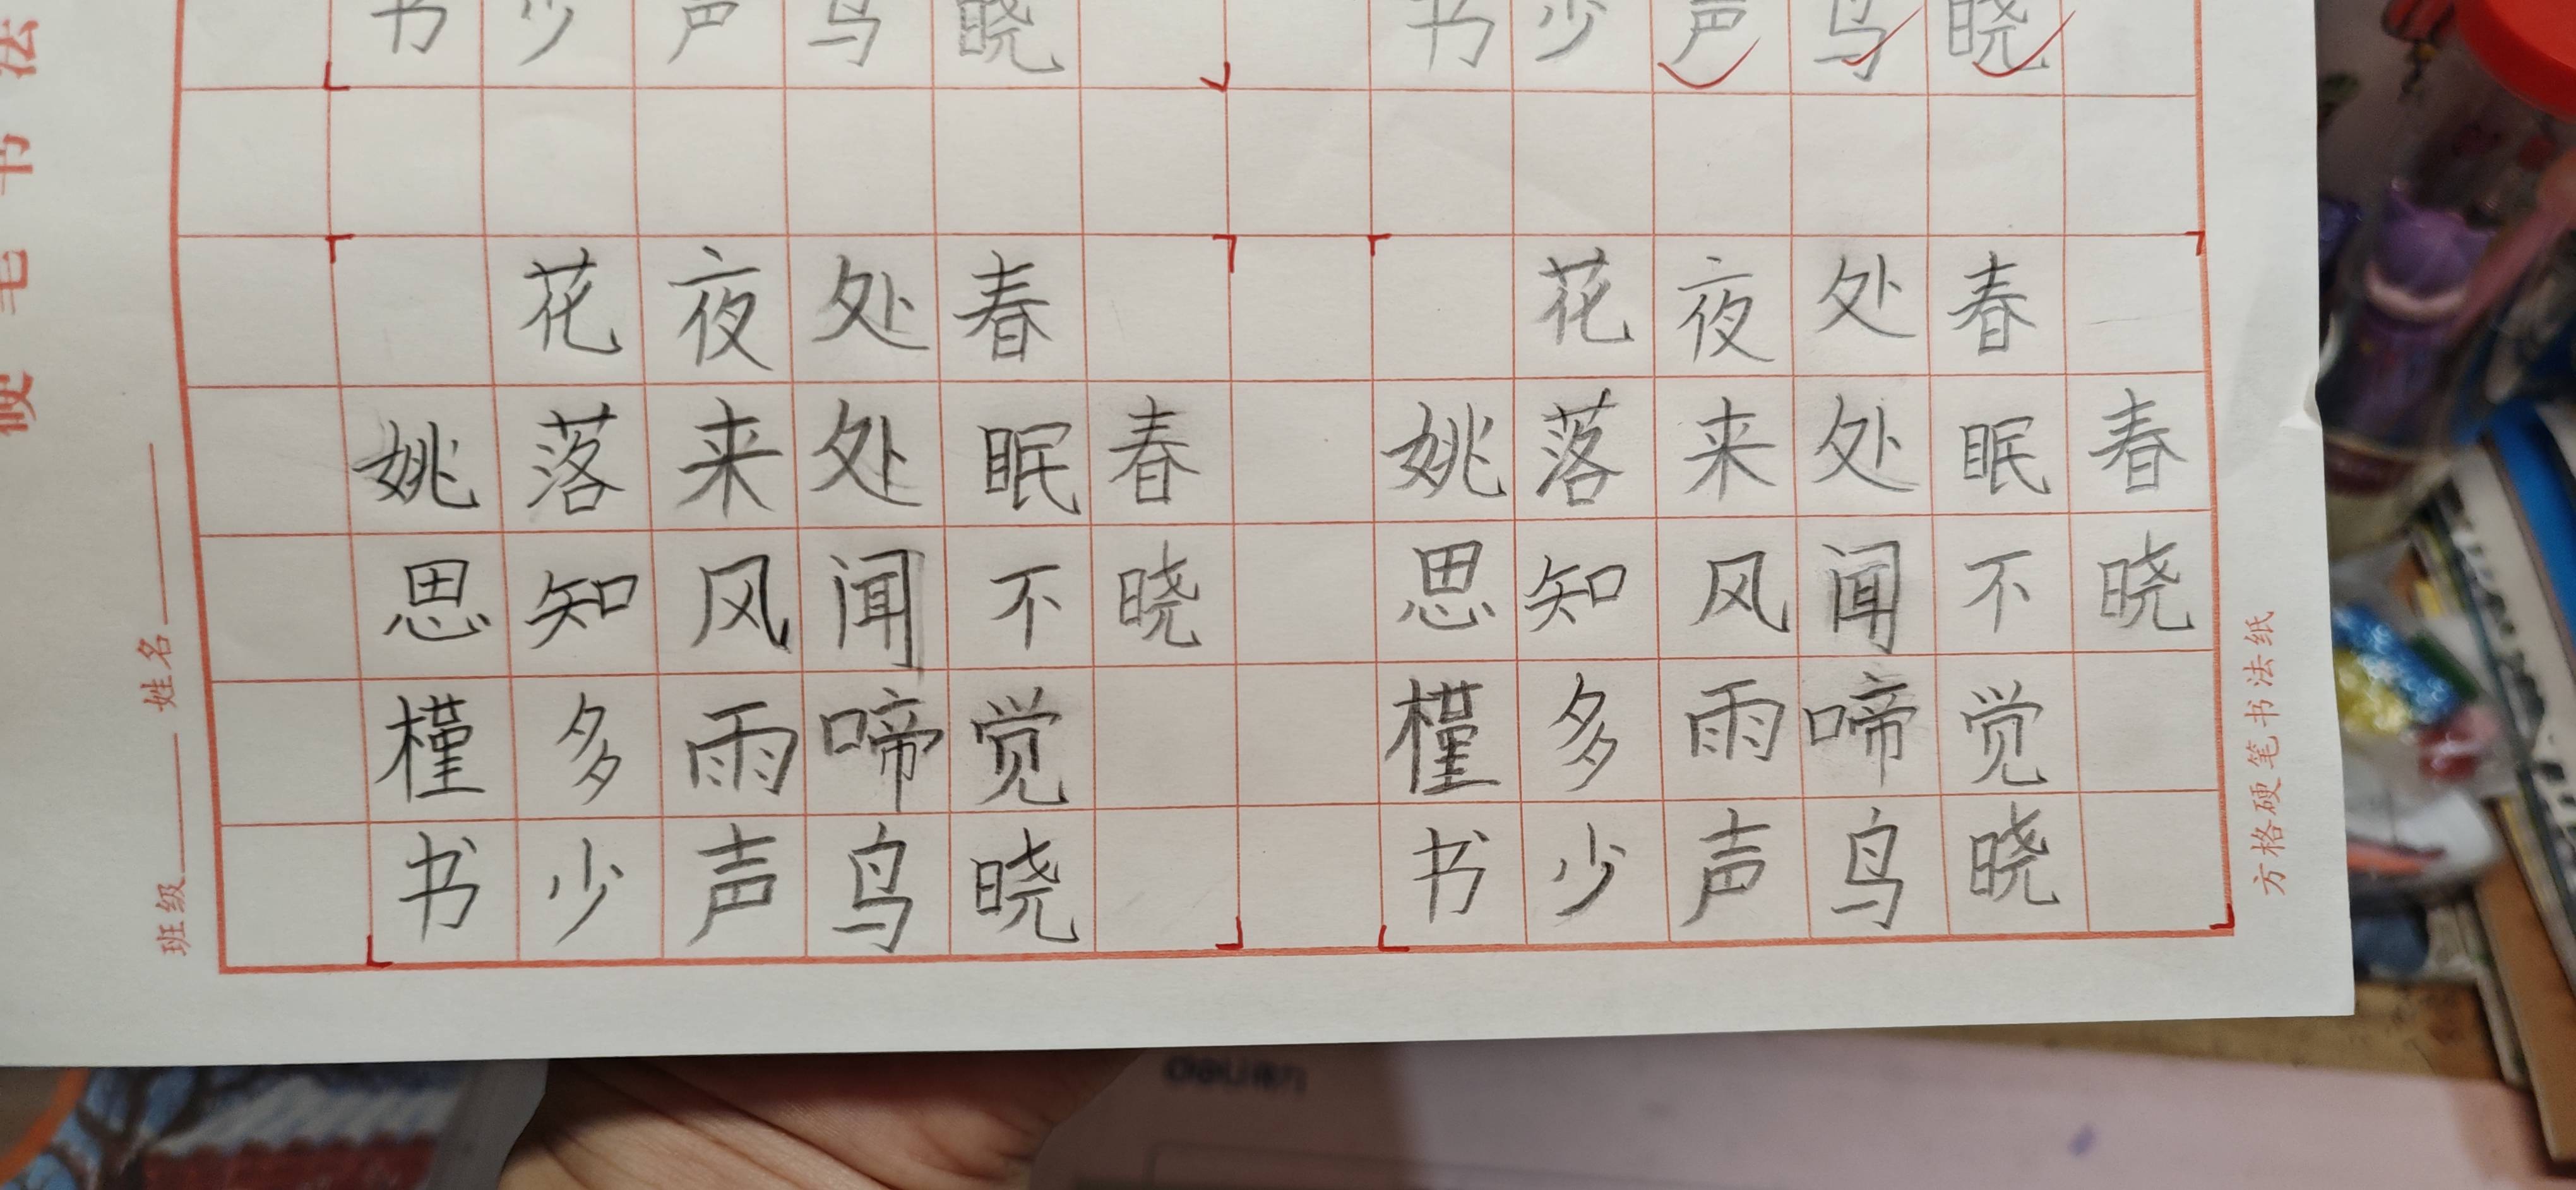 硬毛书法
书少声鸟晓
书少声鸟晓
春晓
春眠不觉晓
处处闻啼鸟
夜来风雨声
花落知多少
姚思槿书
春晓
春眠不觉晓
处处闻啼鸟
夜来风雨声
花落知多少
姚思槿书
班级 姓名
方格硬笔书法纸